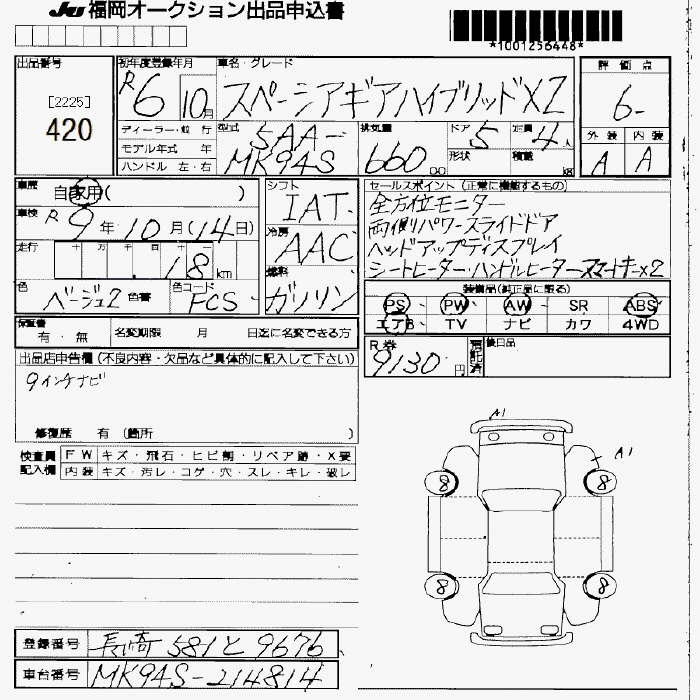 JU 福岡オークション出品申込書
*1001256448*
出品番号
[2225]
420
初年度登録年月
R6 10月
車名・グレード
スペーシアギアハイブリッドX2
評価点
6-
外装 内装
A A
ディーラー・並行
モデル年式 年
ハンドル 左・右
型式
5AA-
MK94S
排気量
660 cc
ドア
5
形状
定員
4人
積載
kg
車歴
自家用( )
車検
R9年10月(14日)
走行
十 万 千 百 十 一
18 km
色
ベージュ2 色替
色コード
FCS
シフト
IAT
冷房
AAC
燃料
ガソリン
セールスポイント(正常に機能するもの)
全方位モニター
両側パワースライドドア
ヘッドアップディスプレイ
シートヒーター・ハンドルヒーター スマートキーx2
装備品(純正品に限る)
PS PW AW SR ABS
エアB TV ナビ カワ 4WD
保証書
有・無
名変期限 月 日迄に名変できる方
R券
9130円
預託済
後日品
出品店申告欄(不良内容・欠品など具体的に記入して下さい)
9インチナビ
修復歴 有 (箇所 )
検査員記入欄
FW キズ・飛石・ヒビ割・リペア跡・X要
内装 キズ・汚レ・コゲ・穴・スレ・キレ・破レ
A1
A1
8 8
8 8
登録番号 長崎 581 と 9676
車台番号 MK94S-214814